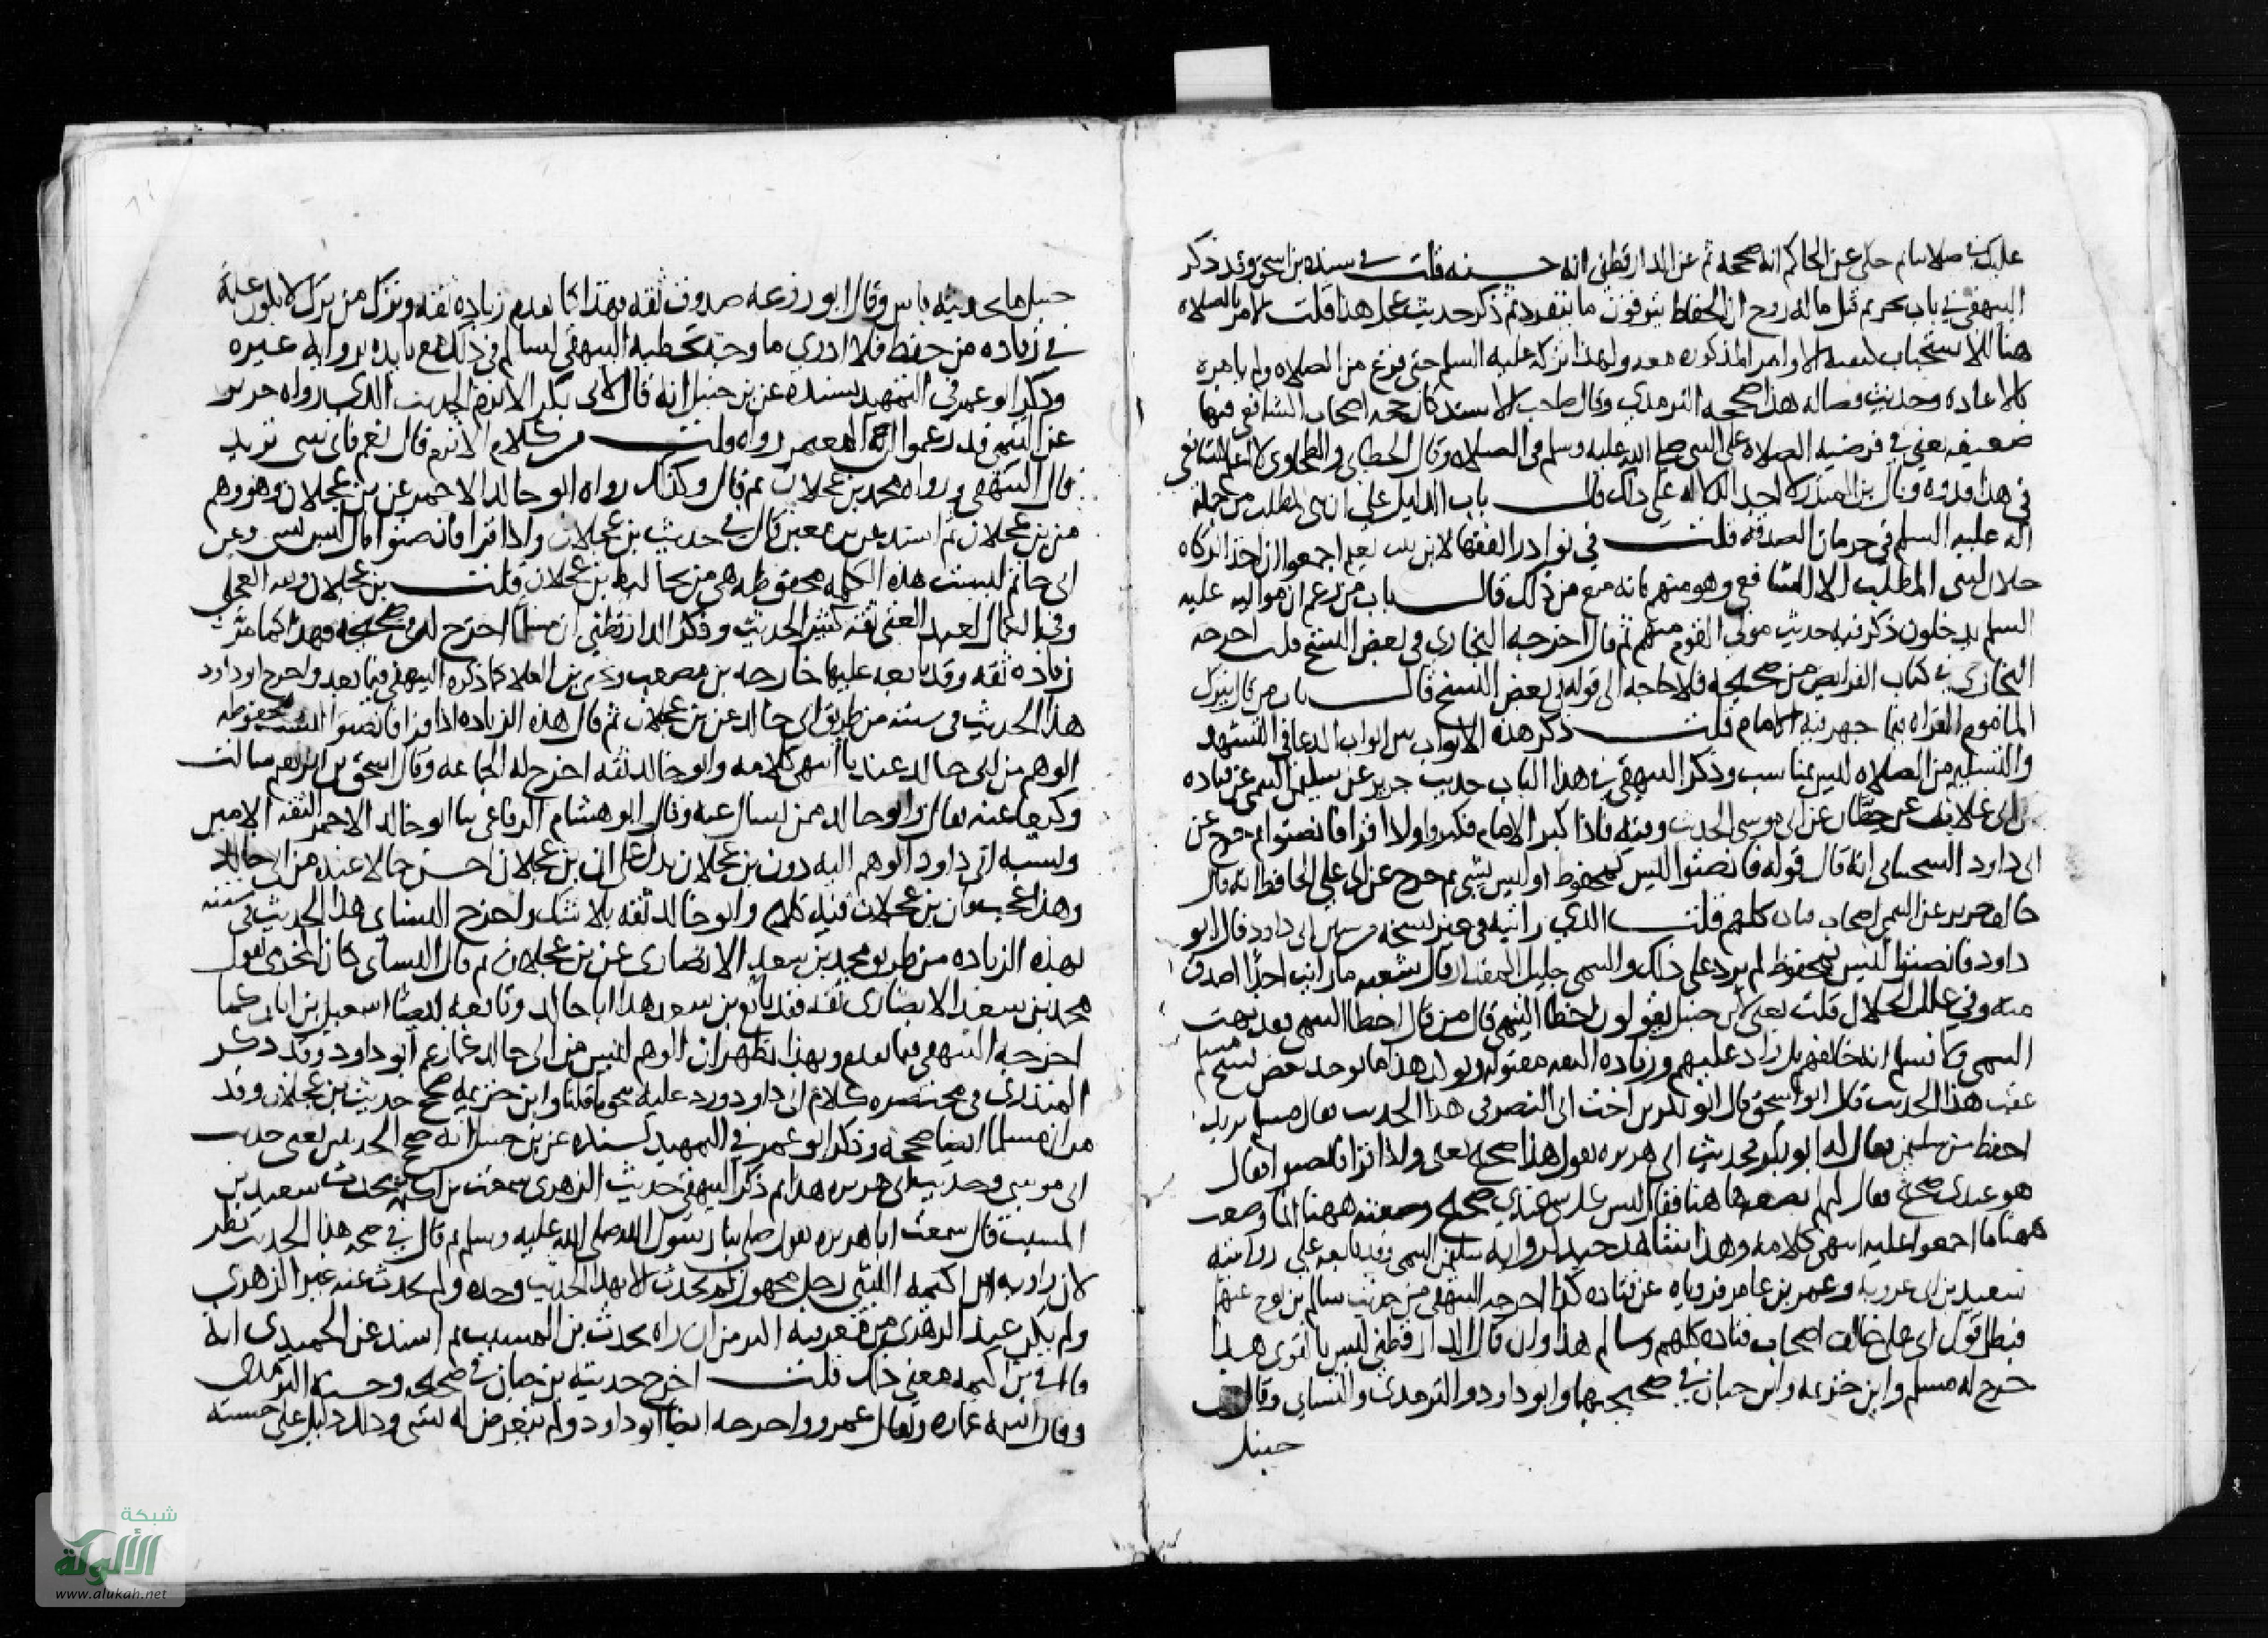 عليك في صلاتنا ثم حكى عن الحاكم انه صححه ثم عن الدارقطني انه حسنه قلت في سنده بن اسحق وقد ذكر
البيهقي في باب تحريم قتل ماله روح ان الحفاظ يتوقون ما ينفرد به ثم ذكر حديث عجل هذا قلت الامر بالصلاة
هنا للاستحباب كبقية الاوامر المذكوره معه ولهذا تركه عليه السلم حتى فرغ من الصلاه ولم يامره
بالاعاده وحديث فضاله هذا صححه الترمذي وقال صاحب الاستذكار حجة اصحاب الشافعي فيها
ضعيفه يعني في فرضيه الصلاه على النبي صلى الله عليه وسلم في الصلاه وقال الخطابي والطحاوي لا نعلم للشافعي
في هذا قدوه وقال بن المنذر لا اجد الدلاله على ذلك قال باب الدليل على ان بني المطلب من جملة
اله عليه السلم في حرمان الصدقه قلت في نوادر الفقها لابن بنت نعيم اجمعوا ان اخذ الزكاه
حلال لبني المطلب الا الشافعي وهو منهم فانه منع من ذلك قال باب من زعم ان مواليه عليه
السلم يدخلون ذكر فيه حديث مولى القوم منهم ثم قال اخرجه البخاري في بعض النسخ قلت اخرجه
البخاري في كتاب الفرايض من صحيحه فلا حاجه الى قوله في بعض النسخ قال باب من قال يترك
الماموم القراه فيما جهر فيه الامام قلت ذكر هذه الابواب بين ابواب الدعا في التشهد
والتسليم من الصلاه ليس بمناسب وذكر البيهقي في هذا الباب حديث جرير عن سليمن التيمي عن قتاده
عن ابي غلاب عن حطان عن ابي موسى الحديث وفيه فاذا كبر الامام فكبروا واذا قرا فانصتوا ثم خرج عن
ابي داود السجستاني انه قال قوله فانصتوا ليس بمحفوظ او ليس بشي ثم خرج عن ابي علي الحافظ انه قال
خالف جرير عن التيمي اصحاب قتاده كلهم قلت الذي رايته في غير نسخه من سنن ابي داود قال ابو
داود فانصتوا ليس بمحفوظ لم يزد على ذلك والتيمي جليل المقدار قال شعبه ما رايت احدا اصدق
منه وفي علل الخلال قلت يعني لابن حنبل يقولون اخطا التيمي قال من قال اخطا التيمي فقد بهت
التيمي ولا نسلم انه خالفهم بل زاد عليهم وزياده الثقه مقبوله ويويد هذا ما يوجد في بعض نسخ مسلم
عقيب هذا الحديث قال ابو اسحق قال ابو بكر بن اخت ابي النضر في هذا الحديث فقال مسلم تريد
احفظ من سليمن فقال له ابو بكر فحديث ابي هريره يقول هذا صحيح يعني واذا قرا فانصتوا فقال
هو عندي صحيح فقال لم لم تضعه ها هنا فقال ليس كل شي عندي صحيح وضعته ههنا انما وضعت
ههنا ما اجمعوا عليه انتهى كلامه وهذا شاهد جيد لروايه سليمن التيمي وقد تابعه على روايته
سعيد بن ابي عروبه وعمر بن عامر فروياه عن قتاده كذا اخرجه البيهقي من حديث سالم بن نوح عنهما
فبطل قول ابي علي خالف اصحاب قتاده كلهم وسالم هذا وان قال الدارقطني ليس بالقوي فقد
خرج له مسلم وابن خزيمه وابن حبان في صحيحيهما وابو داود والترمذي والنساي وقال بن
حنبل
حنبل ما بحديثه باس وقال ابو زرعه صدوق ثقه فهذا كما تقدم زياده ثقه وترك من ترك لا يكون علة
في زياده من حفظ فلا ادري ما وجه تخطيه البيهقي لسالم في ذلك مع تاييده بروايه غيره
وذكر ابو عمر في التمهيد بسنده عن بن حنبل انه قال لابي بكر الاثرم الحديث الذي رواه جرير
عن التيمي قد زعموا ان المعتمر رواه قلت من كلام الاثرم قال نعم فاي شي تريد
قال البيهقي ورواه محمد بن عجلان ثم قال وكذلك رواه ابو خالد الاحمر عن بن عجلان وهو وهم
من بن عجلان ثم اسند عن بن معين قال في حديث بن عجلان واذا قرا فانصتوا قال ليس بشي وعن
ابي حاتم ليست هذه الكلمه محفوظه هي من تخاليط بن عجلان قلت بن عجلان وثقه العجلي
وفي الكمال لعبد الغني ثقه كثير الحديث وذكر الدارقطني ان مسلما اخرج له في صحيحه فهذا كما مر
زياده ثقه وقد تابعه عليها خارجه بن مصعب ويحيى بن العلا كما ذكره البيهقي فيما بعد واخرج ابو داود
هذا الحديث في سننه من طريق ابي خالد عن بن عجلان ثم قال هذه الزياده اذا قرا فانصتوا ليست محفوظه
الوهم من ابي خالد عندنا انتهى كلامه وابو خالد ثقه اخرج له الجماعه وقال اسحق بن ابراهيم سالت
وكيعا عنه فقال وابو خالد ممن يسال عنه وقال ابو هشام الرفاعي نا ابو خالد الاحمر الثقه الامين
ونسبه ابي داود الوهم اليه دون بن عجلان يدل على ان بن عجلان احسن حالا عنده من ابي خالد
وهذا عجيب فان بن عجلان فيه كلام وابو خالد ثقه بلا شك واخرج النساي هذا الحديث في سننه
بهذه الزياده من طريق محمد بن سعد الانصاري عن بن عجلان ثم قال النساي كان المخرمي يقول
محمد بن سعد الانصاري ثقه فقد تابع بن سعد هذا ابا خالد وتابعه ايضا اسمعيل بن ابان كما
اخرجه البيهقي فيما بعد وبهذا يظهر ان الوهم ليس من ابي خالد كما زعم ابو داود وقد ذكر
المنذري في مختصره كلام ابي داود ورد عليه بنحو ما قلنا وابن خزيمه صحح حديث بن عجلان وقد
مر ان مسلما ايضا صححه وذكر ابو عمر في التمهيد بسنده عن بن حنبل انه صحح الحديثين يعني حديث
ابي موسى وحديث ابي هريره هذا ثم ذكر البيهقي حديث الزهري سمعت بن اكيمه يحدث سعيد بن
المسيب قال سمعت ابا هريره يقول صلى بنا رسول الله صلى الله عليه وسلم ثم قال في صحة هذا الحديث نظر
لان راويه بن اكيمه الليثي رجل مجهول لم يحدث الا بهذا الحديث وحده ولم يحدث عنه غير الزهري
ولم يكن عند الزهري من معرفته اكثر من ان راه يحدث بن المسيب ثم اسند عن الحميدي انه
قال في بن اكيمه معنى ذلك قلت اخرج حديثه بن حبان في صحيحه وحسنه الترمذي
وقال اسمه عماره ويقال عمرو واخرجه ايضا ابو داود ولم يتعرض له بشي وذلك دليل على حسنه
شبكة
الألوكة
www.alukah.net